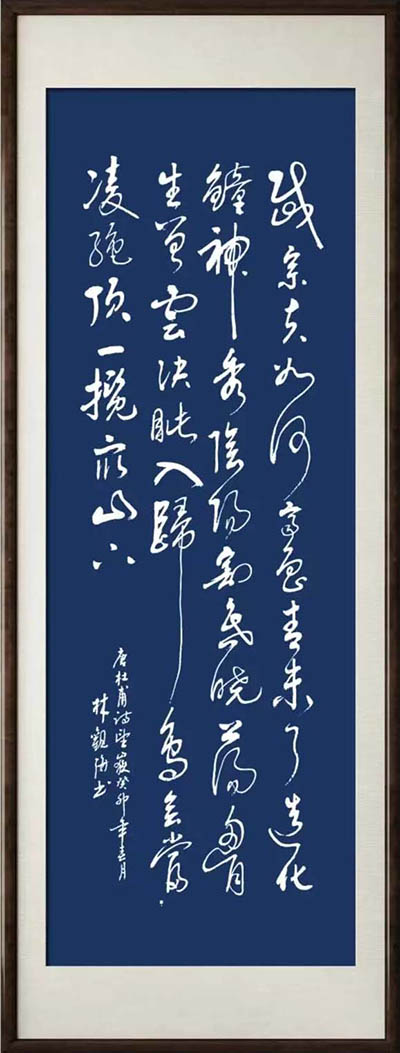 岱宗夫如何齊魯青未了造化
鐘神秀陰陽割昏晓蕩胸
生曾雲决眦入歸鳥會當
凌絶顶一攬众山小
唐杜甫詩望嶽癸卯年春月
林觀海书